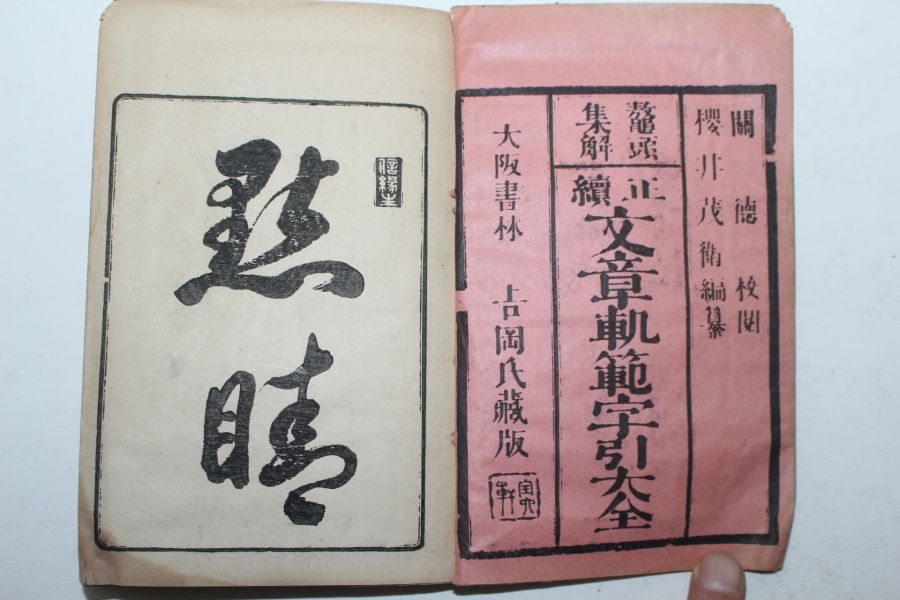 關德校閱
櫻井茂衛編纂
鼇頭
集解
正續文章軌範字引大全
大阪書林 吉岡氏藏版
點睛